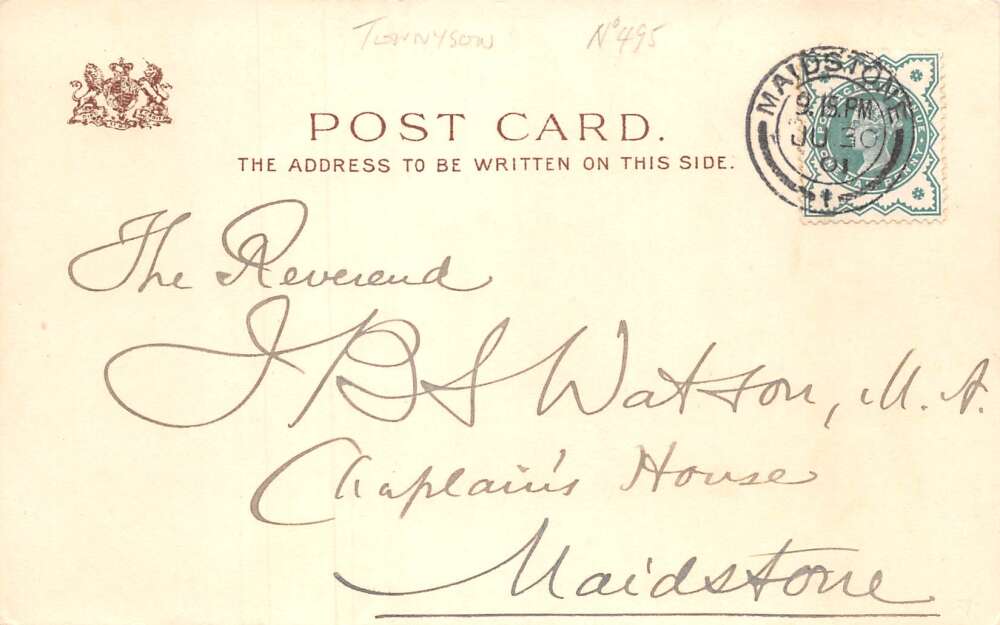 TENNYSON Nº 495
POST CARD.
THE ADDRESS TO BE WRITTEN ON THIS SIDE.
MAIDSTONE
9.15.PM
JU 30
01
The Reverend
J B S Watson, M. A.
Chaplain's House
Maidstone